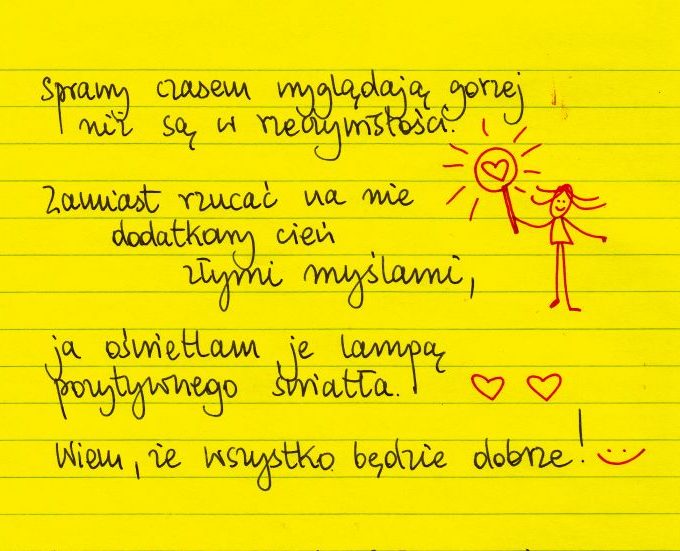 Sprawy czasem wyglądają gorzej
niż są w rzeczywistości.
Zamiast rzucać na nie
dodatkowy cień
złymi myślami,
ja oświetlam je lampą
pozytywnego światła.
Wiem, że wszystko będzie dobrze!